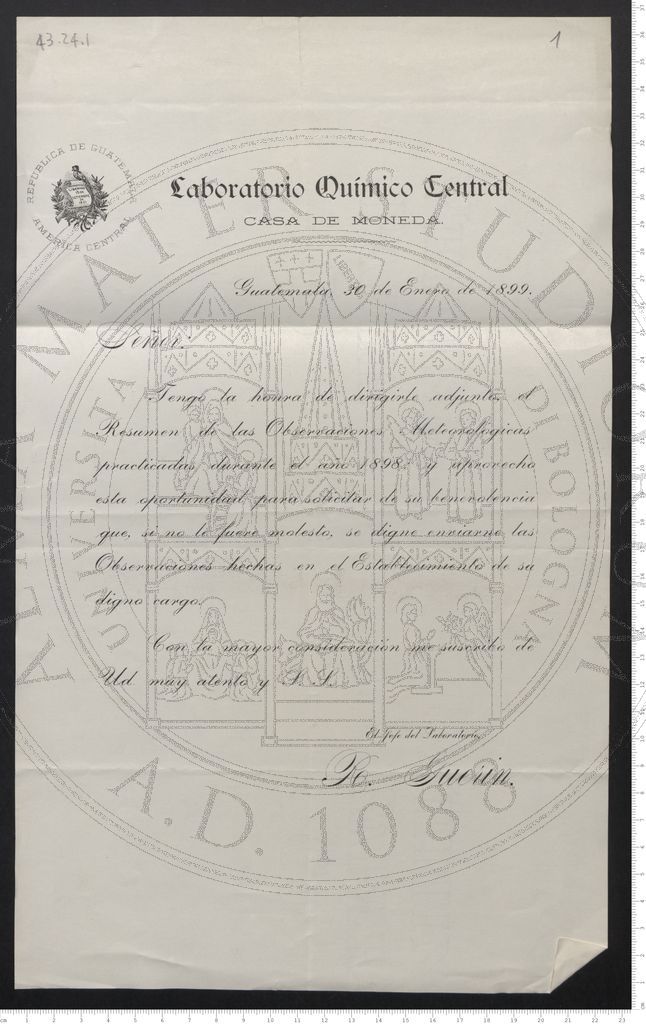 43.24.1
1
REPUBLICA DE GUATEMALA
AMERICA CENTRAL
Laboratorio Químico Central
CASA DE MONEDA.
Guatemala, 30 de Enero de 1899.
Señor:
Tengo la honra de dirigirle adjunto, el
Resumen de las Observaciones Meteorológicas
practicadas durante el año 1898; y aprovecho
esta oportunidad para solicitar de su benevolencia
que, si no le fuere molesto, se digne enviarme las
Observaciones hechas en el Establecimiento de su
digno cargo.
Con la mayor consideración me suscribo de
Ud muy atento y S. S.
El Jefe del Laboratorio,
R. Guerin.
ALMA MATER STUDIORUM
UNIVERSITA DI BOLOGNA
LIBERTAS
A.D. 1088